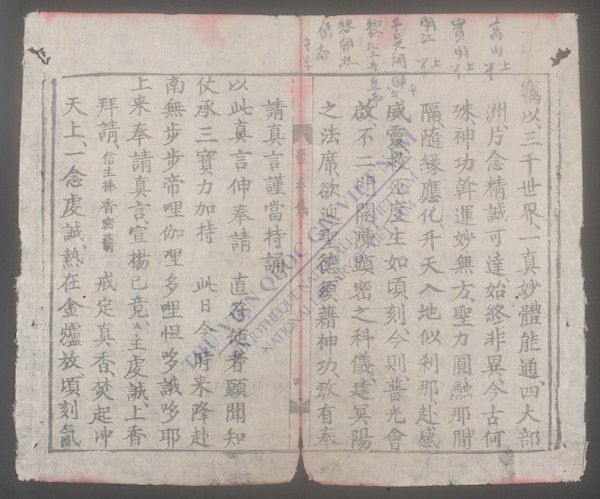 高山上
貴明上
明江上
竊以、三千世界、一真妙體能通、四大部
洲、片念精誠可達、始終非異、今古何
殊、神功斡運妙無方、聖力圓融那間
隔、隨緣應化、升天入地似利那、赴感
威靈、救人度生如頃刻、今則普光會
啟、不二門開、陳顯密之科儀、建冥陽
之法席、欲迎聖德、須藉神功、教有奉
請真言、謹當持誦
以此真言伸奉請 直符使者願聞知
仗承三寶力加持 此日今時來降赴
南無步步帝哩伽哩多哩怛哆誐哆耶
上来奉請真言宣揚已竟、主虔誠、上香
拜請、信主捧香 戒定真香、焚起冲
天上、一念虔誠、熱在金爐放、頃刻氤
THƯ VIỆN QUỐC GIA VIỆT NAM
BIBLIOTHEQUE NATIONALE DU VIETNAM
NATIONAL LIBRARY OF VIETNAM